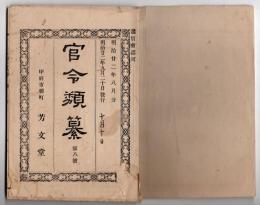 明治廿二年八月分
明治廿二年九月二十日發行
官令類纂
第八號
甲府市櫻町
芳文堂